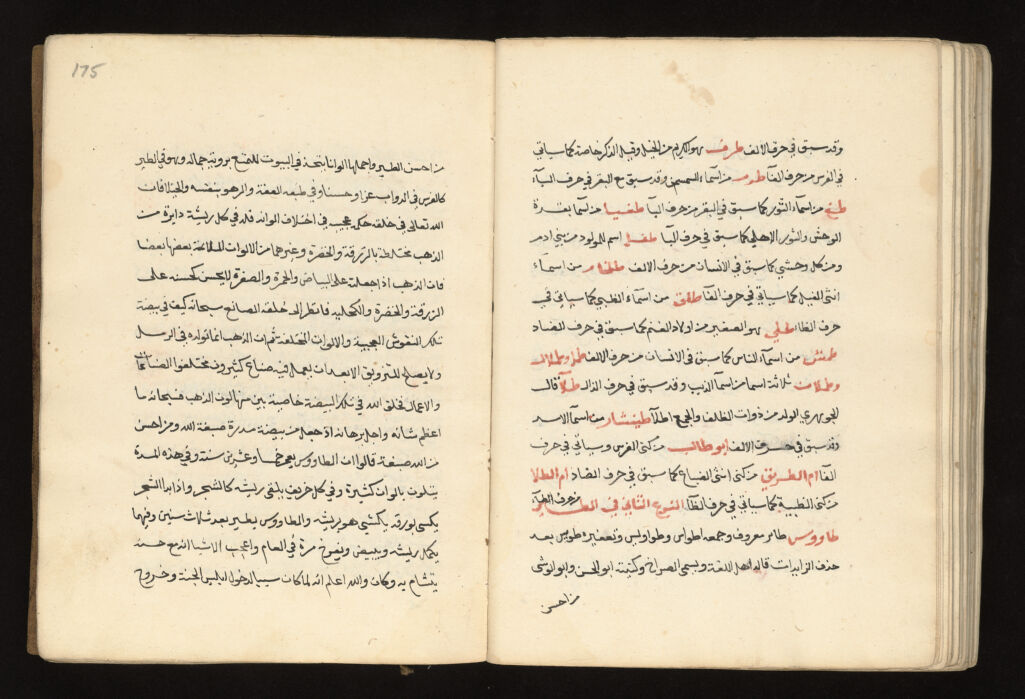 وقد سبق في حرف الالف طرف هو الكريم من الخيل وقيل الذكر خاصة كما سياتي
في الفرس من حرف الفا من اسماء السميسم وقد سبق مع البقر في حرف البآء
طيغ من اسماء الثور كما سبق في البقر من حرف البا طغيا من اسما بقرة
الوحش والثور الاهلي كما سبق في حرف البا طفل اسم للمولود من بني ادم
ومن كل وحشي كما سبق في الانسان من حرف الالف طلخام من اسمآء
انثى الفيل كما سياتي في حرف الفآ طلق من اسمآء الظبي كما سياتي في
حرف الظاء طلي هو الصغير من اولاد الغنم كما سبق في حرف الضاد
طمش من اسمآء الناس كما سبق في الانسان من حرف الالف طمل وطملال
وطملات ثلاثة اسما من اسمآ الذيب وقد سبق في حرف الذال طلآ قال
الجوهري الولد من ذوات الظلف والجمع اطلآ طيشار من اسمآ الاسد
وقد سبق في حرف الالف ابو طالب من كنى الفرس وسياتي في حرف
الفآ ام الطريق من كنى انثى الضباع كما سبق في حرف الضاد ام الطلا
من كنى الظبية كما سياتي في حرف الظآ النوع الثاني في الطاير من حرف الطآ
طاووس طاير معروف وجمعه اطواس وطواويس وتصغيره طويس بعد
حذف الزايدات قاله اهل اللغة ويسمى الصراخ وكنيته ابو الحسن وابو الوشى
من احسن
175
من احسن الطير واجملها الوانا يتخذ في البيوت للتمتع بروية جماله وهو في الطير
كالفرس في الدواب عزا وحسنا وفي طبعه العفة والزهو بنفسه والخيلا فان
الله تعالى في خلقه حكم عجيب في اختلاف الوانه فله في كل ريشة دايرة من
الذهب مختلطة بالزرقة والخضرة وغيرهما من الالوان الملايمة بعضها بعضا
فان الذهب اذا جعلته على البياض والحمرة والصفرة لا يحسن كحسنه على
الزرقة والخضرة والكحلية فانظر الى خلقة الصانع سبحانه كيف في بيضة
تلك النقوش العجيبة والالوان المختلفة ثم ان الذهب انما تولده في الرمل
ولا يصلح للتزويق الا بعد ان يعمل فيه صناع كثيرون مختلفوا الصناعات
والاعمال فخلق الله في تلك البيضة خاصية بين منها لون الذهب فسبحانه ما
اعظم شانه واجل برهانه اذ جعل من بيضة مدرة صبغة الله ومن احسن
من الله صبغة قالوا ان الطاووس يعمر خمسا وعشرين سنة وفي هذه المدة
يتلون بالوان كثيرة وفي كل خريف يلقي ريشه كالشجر واذا بدا الشجر
يكسى بورقه يكتسي هو بريشه والطاووس يطير بعد ثلاث سنين وفيها
يكمل ريشه ويبيض ويفرخ مرة في العام واعجب الاشيا انه مع حسنه
يتشام به وكان والله اعلم انه لما كان سببا لدخول ابليس الجنة وخروج